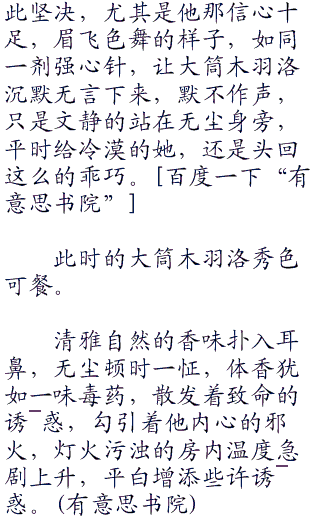 此坚决，尤其是他那信心十
足，眉飞色舞的样子，如同
一剂强心针，让大筒木羽洛
沉默无言下来，默不作声，
只是文静的站在无尘身旁，
平时给冷漠的她，还是头回
这么的乖巧。[百度一下“有
意思书院”]
此时的大筒木羽洛秀色
可餐。
清雅自然的香味扑入耳
鼻，无尘顿时一怔，体香犹
如一味毒药，散发着致命的
诱¯惑，勾引着他内心的邪
火，灯火污浊的房内温度急
剧上升，平白增添些许诱¯
惑。(有意思书院)